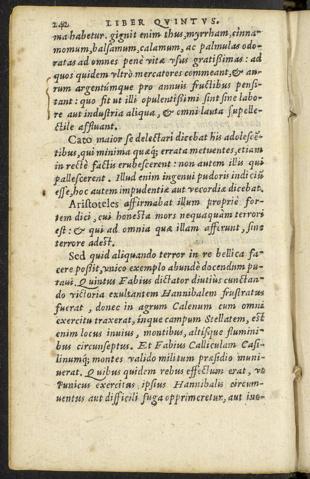 242 LIBER QVINTVS.
ma habetur. gignit enim thus, myrrham, cinna-
momum, balsamum, calamum, ac palmulas odo-
ratas ad omnes penè vitæ vsus gratißimas: ad
quos quidem vltrò mercatores commeant, & au-
rum argentúmque pro annuis fructibus pensi-
tant: quo fit ut illi opulentißimi sint sine labo-
re aut industria aliqua, & omni lauta supelle-
ctile affluant.
Cato maior se delectari dicebat his adolescē-
tibus, qui minima quæq; errata metuentes, etiam
in rectè factis erubescerent: non autem illis qui
pallescerent. Illud enim ingenui pudoris indiciū
esse, hoc autem impudentiæ aut vecordiæ dicebat.
Aristoteles affirmabat illum propriè for-
tem dici, cui honesta mors nequaquam terrori
est: & qui ad omnia quæ illam afferunt, sine
terrore adest.
Sed quid aliquando terror in re bellica fa-
cere poßit, vnico exemplo abundè docendum pu-
taui. Quintus Fabius dictator diutius cunctan-
do victoria exultantem Hannibalem frustratus
fuerat, donec in agrum Calenum cum omni
exercitu traxerat, inque campum Stellatem, est
enim locus inuius, montibus, altisque flumini-
bus circunseptus. Et Fabius Calliculam Casi-
linumq; montes valido militum præsidio muni-
uerat. Quibus quidem rebus effectum erat, vt
Punicus exercitus ipsius Hannibalis circum-
uentus aut difficili fuga opprimeretur, aut